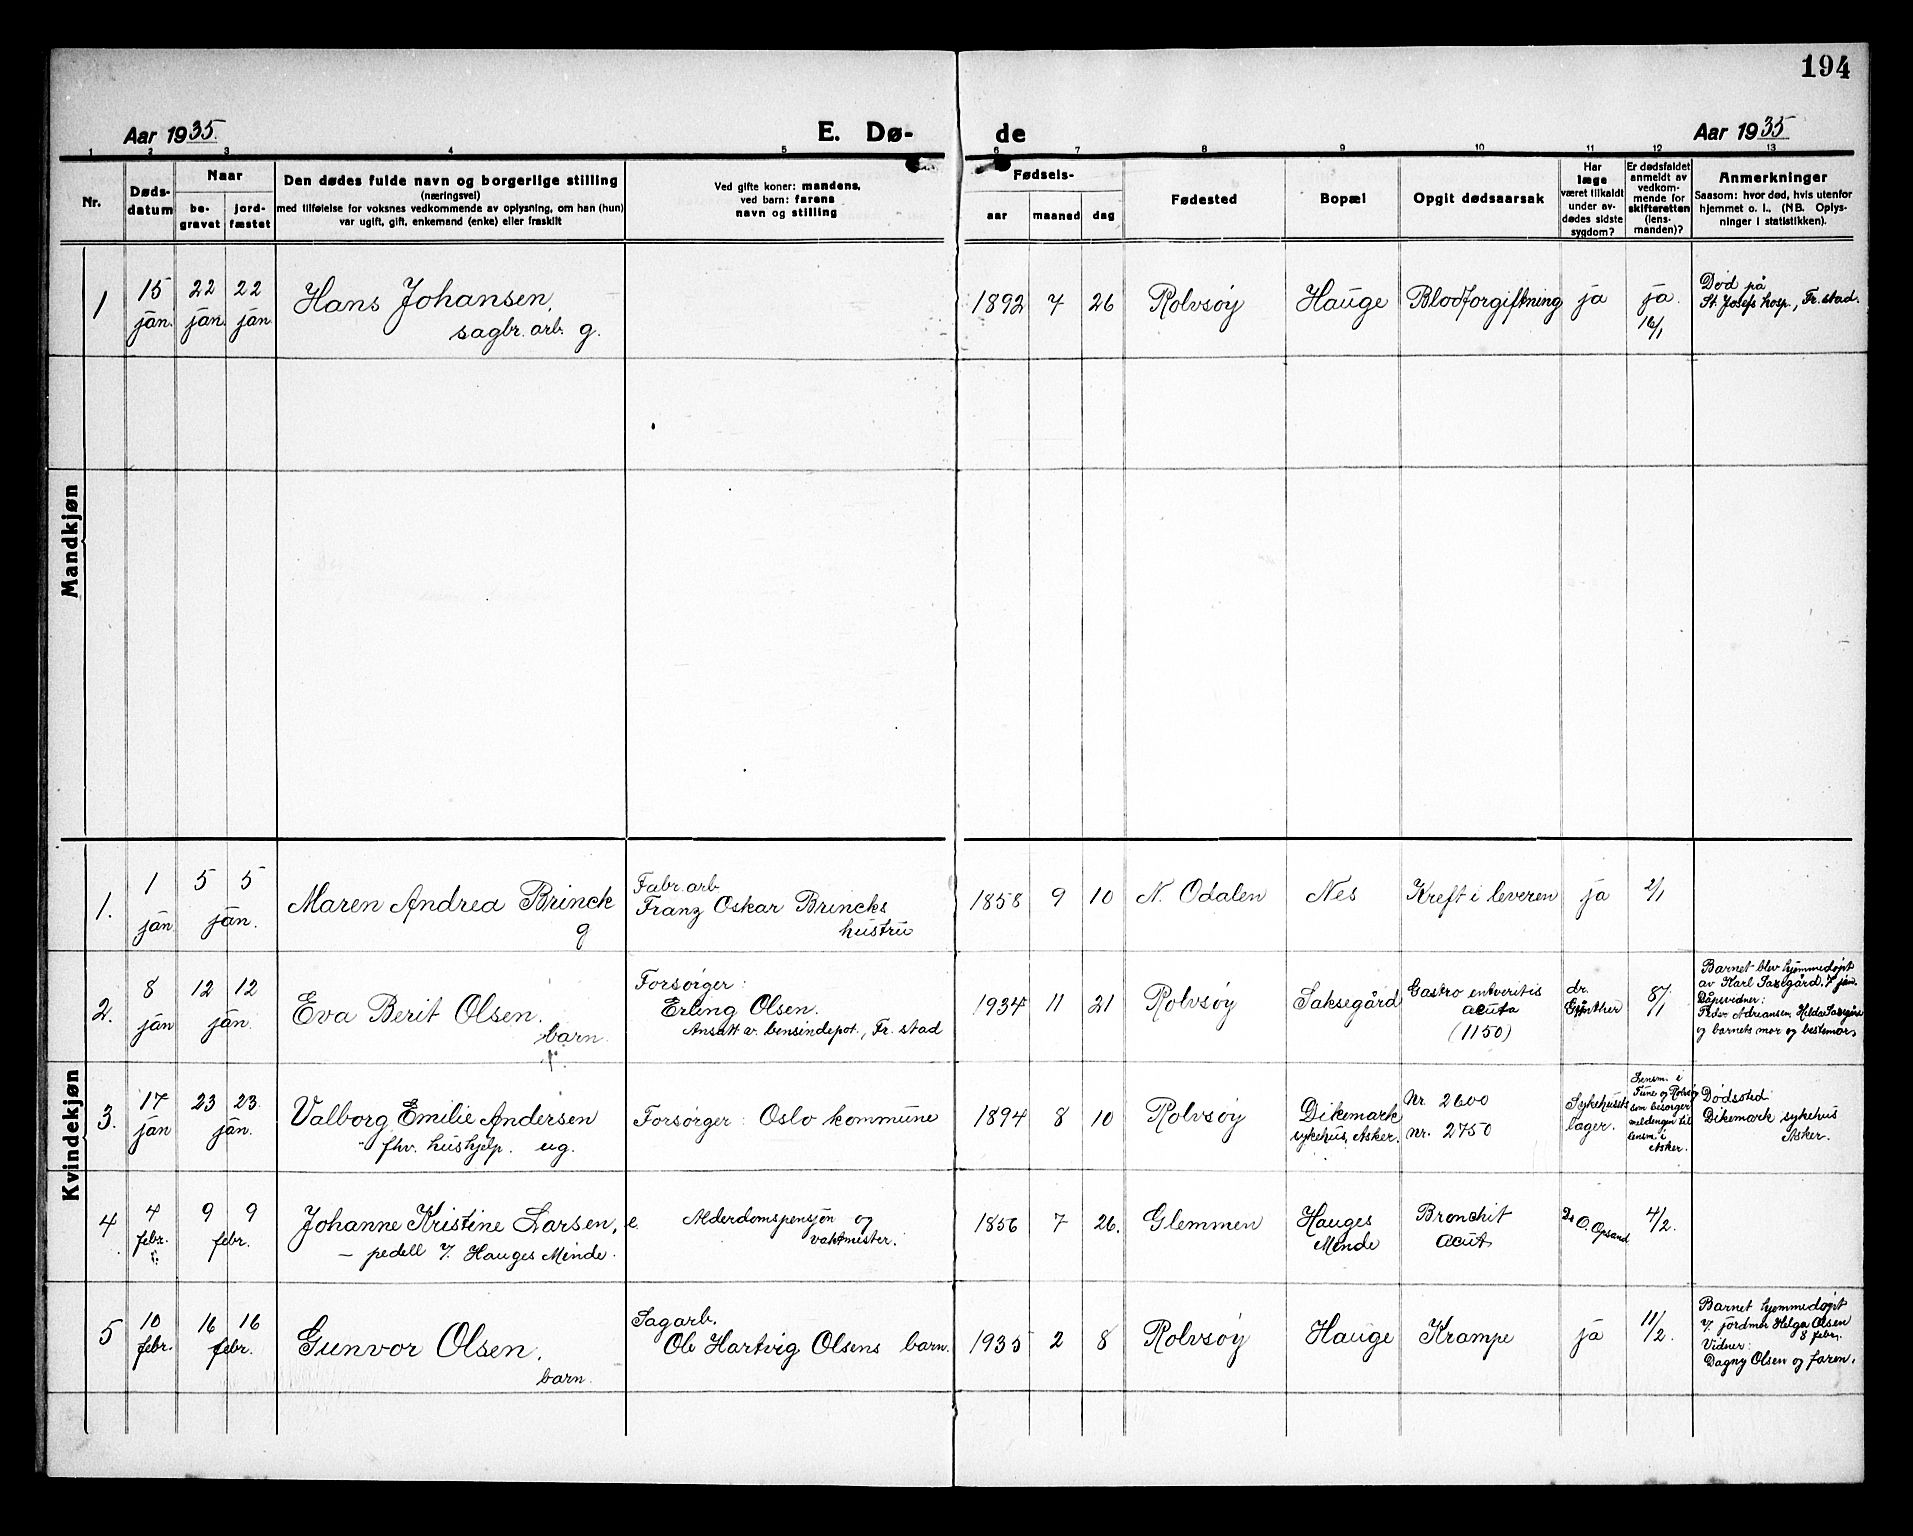 194
Aar 1935. E. Dø- de Aar 1935
1 2 3 4 5 6 7 8 9 10 11 12 13
Nr.
Døds-
datum
Naar
be-
gravet
jord-
fæstet
Den dødes fulde navn og borgerlige stilling
(næringsvei)
med tilføielse for voksnes vedkommende av oplysning, om han (hun)
var ugift, gift, enkemand (enke) eller fraskilt
Ved gifte koner: mandens,
ved barn: farens
navn og stilling
Fødsels-
aar maaned dag
Fødested
Bopæl
Opgit dødsaarsak
Har
læge
været tilkaldt
under av-
dødes sidste
sygdom?
Er dødsfaldet
anmeldt av
vedkom-
mende for
skifteretten
(lens-
manden)?
Anmerkninger
Saasom: hvor død, hvis utenfor
hjemmet o. l., (NB. Oplys-
ninger i statistikken).
Mandkjøn
1
15
jan.
22
jan.
22
jan.
Hans Johansen,
sagbr. arb. g.
1892 7 26 Rolvsøy Hauge Blodforgiftning ja
ja.
16/1
Død på
St. Josefs hosp., Fr.stad.
Kvindekjøn
1.
1
jan
5 5
jan.
Maren Andrea Brinck
g
Fabr.arb
Franz Oskar Brincks
hustru
1858 9 10 N. Odalen Nes Kreft i leveren ja 2/1
2.
8
jan
12 12
jan.
Eva Berit Olsen.
barn.
Forsørger:
Erling Olsen.
Ansatt v. bensindepot., Fr.stad
1934 11 21 Rolvsøy Saksegård
Gastro entveritis
acuta
(1150)
dr.
Günther
8/1
Barnet blev hjemmedøpt
av Karl Saxegård. 7 jan.
Dåpsvidner:
Pedv. Adriansen, Hilda Saxegård
og barnets mor og bestemor.
3.
17
jan
23 23.
jan.
Valborg Emilie Andersen
fhv. hushjelp. ug.
Forsørger: Oslo kommune
1894 8 10 Rolvsøy
Dikemark
sykehus, Asker.
Nr. 2600
Nr. 2750
Sykehusets
læger.
Lensm. i
Tune og Rolvsøy
som besørger
meldingen til
lensm. i
Asker.
Dødssted
Dikemark sykehus
Asker.
4
4
febr.
9 9
febr.
Johanne Kristine Larsen, e.
– pedell v. Hauges Minde.
Alderdomspensjon og
vaktmester.
1856 7 26. Glemmen
Hauges
Minde
Bronchit
acut
Dr O. Opsand
4/2.
5
10
febr.
16 16
febr.
Gunvor Olsen.
barn.
Sagarb.
Ole Hartvig Olsens barn.
1935 2 8 Rolvsøy Hauge Krampe ja 11/2.
Barnet hjemmedøpt
v. jordmor Helga Olsen
8 febr.
Vidner:
Dagny Olsen og faren.